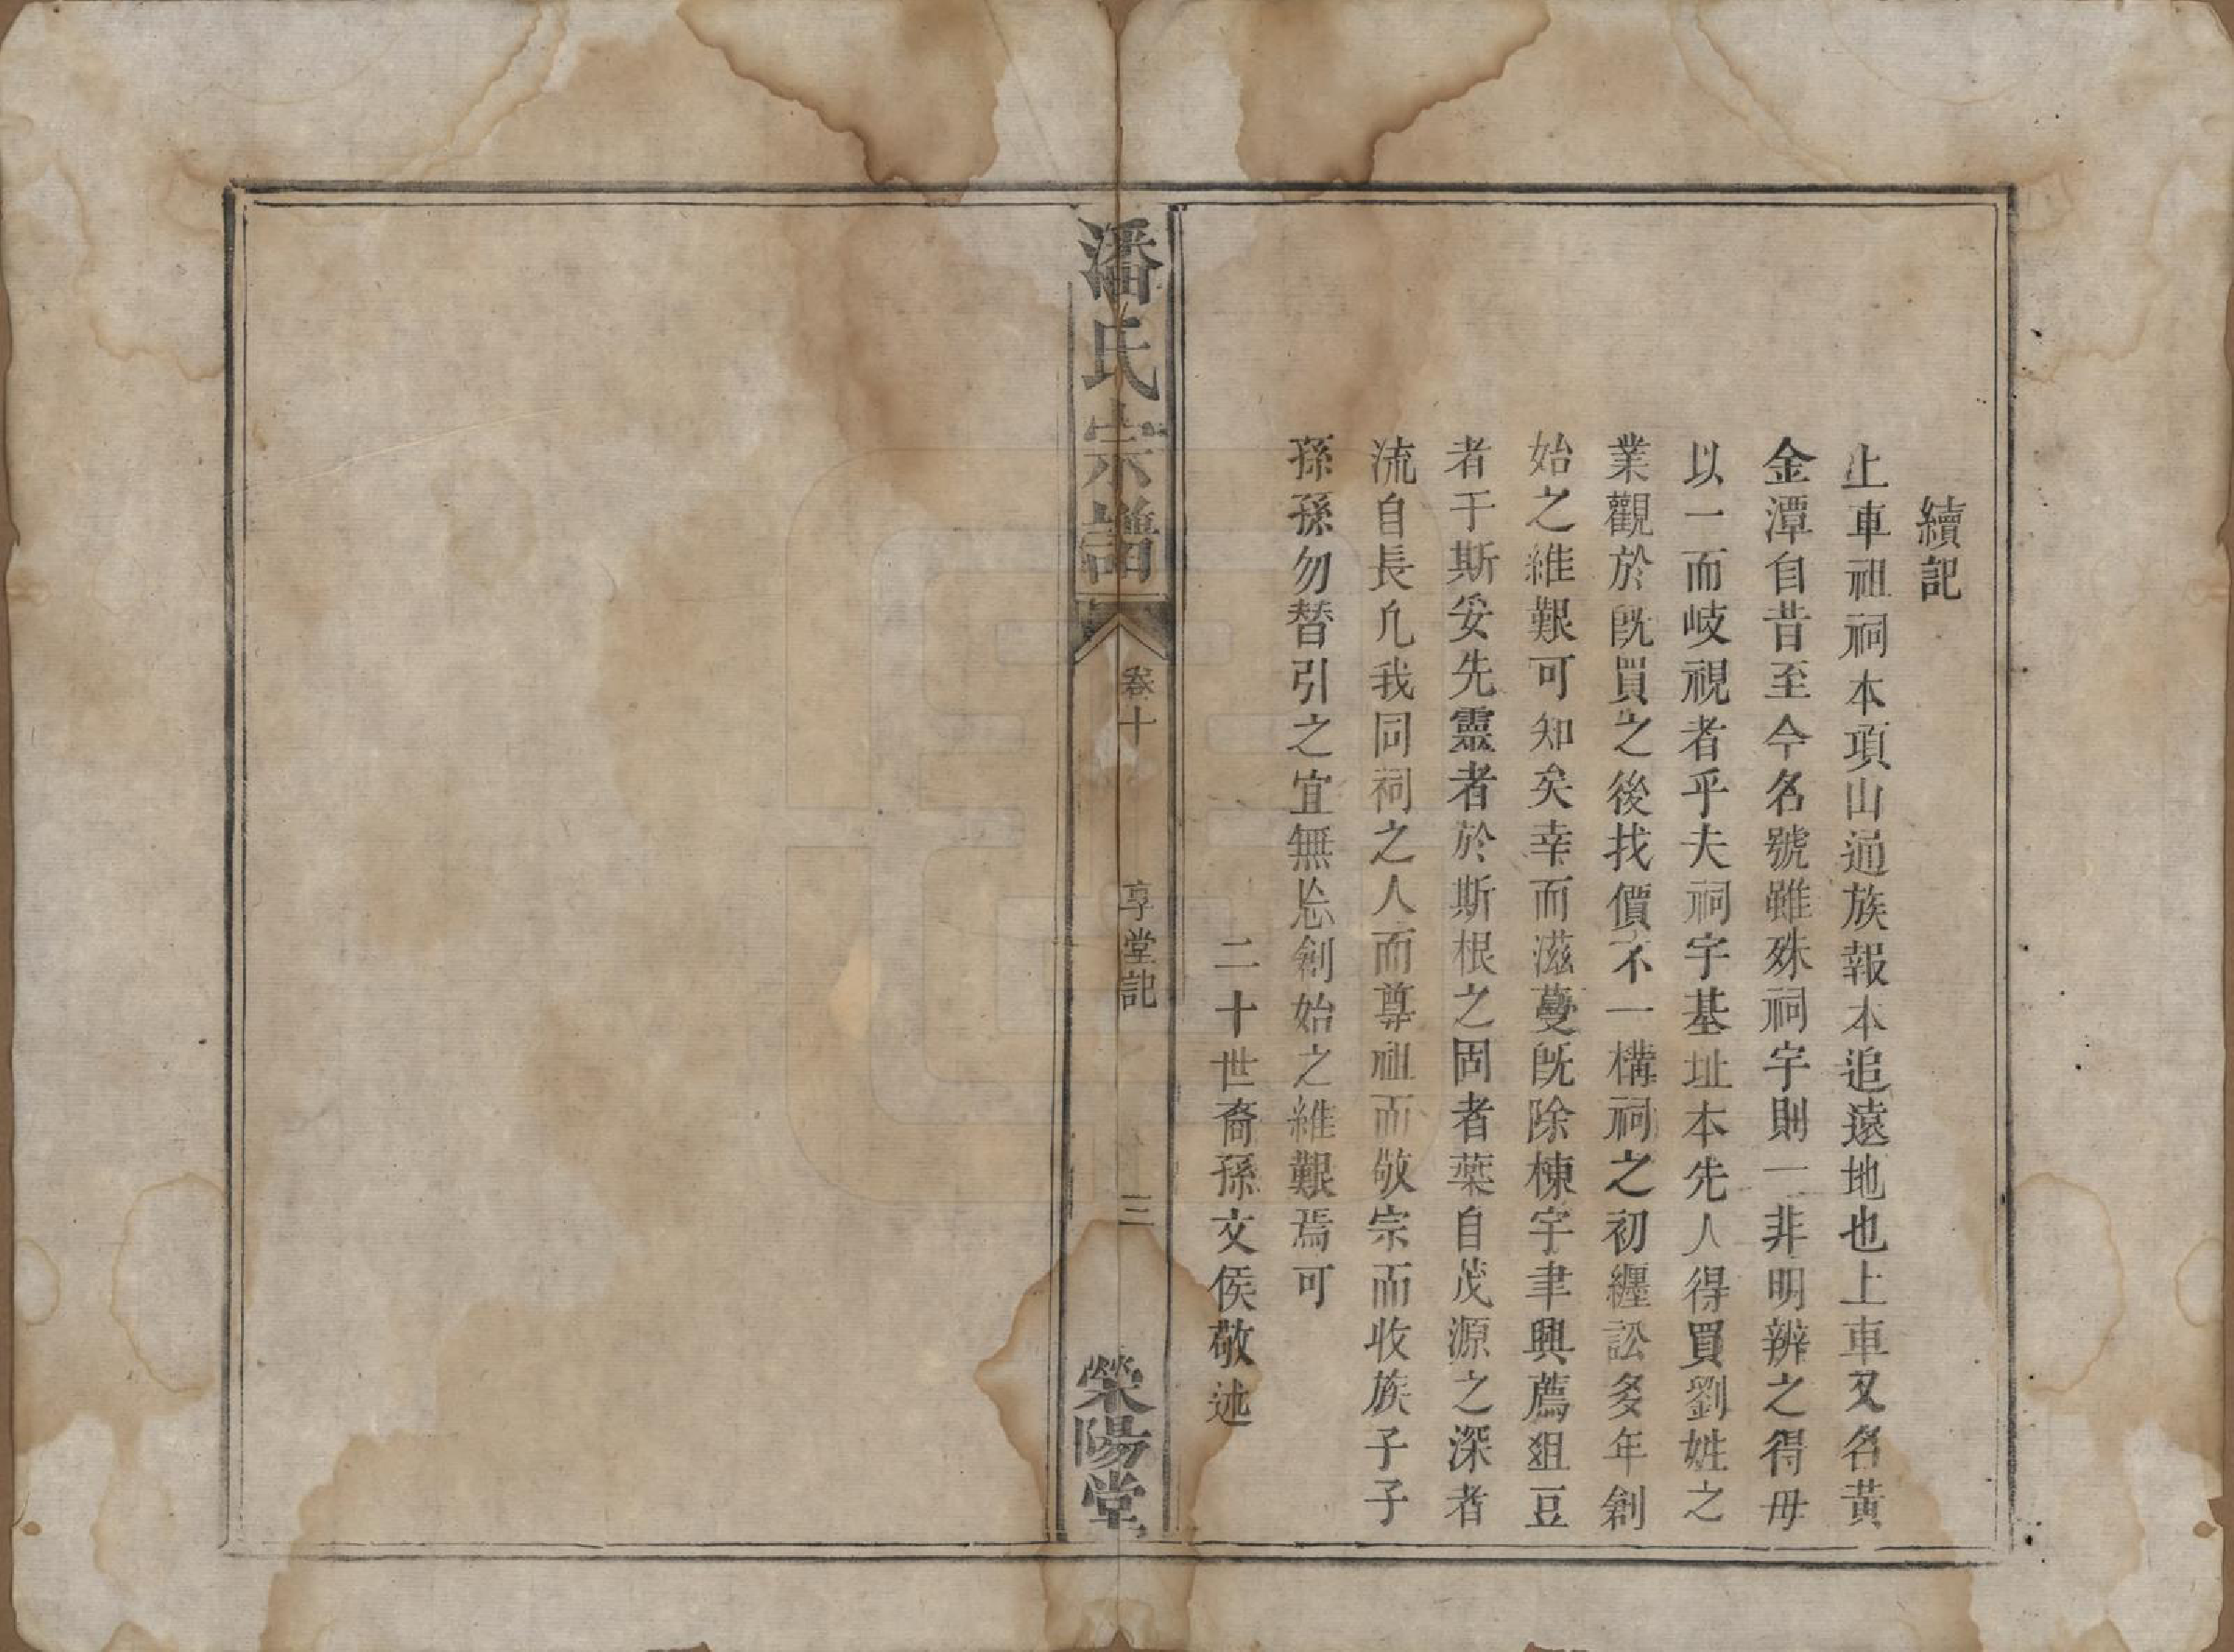 續記
上車祖祠本項山通族報本追遠地也上車又名黃
金潭自昔至今名號雖殊祠宇則一非明辨之得毋
以一而岐視者乎夫祠宇基址本先人得買劉姓之
業觀於既買之後找價不一構祠之初纏訟多年創
始之維艱可知矣幸而滋蔓既除棟宇聿興薦俎豆
者于斯妥先靈者於斯根之固者葉自茂源之深者
流自長凢我同祠之人而尊祖而敬宗而收族子子
孫孫勿替引之宜無忘創始之維艱焉可
二十世裔孫文侯敬述
潘氏宗譜
卷十
享堂記
三
滎陽堂